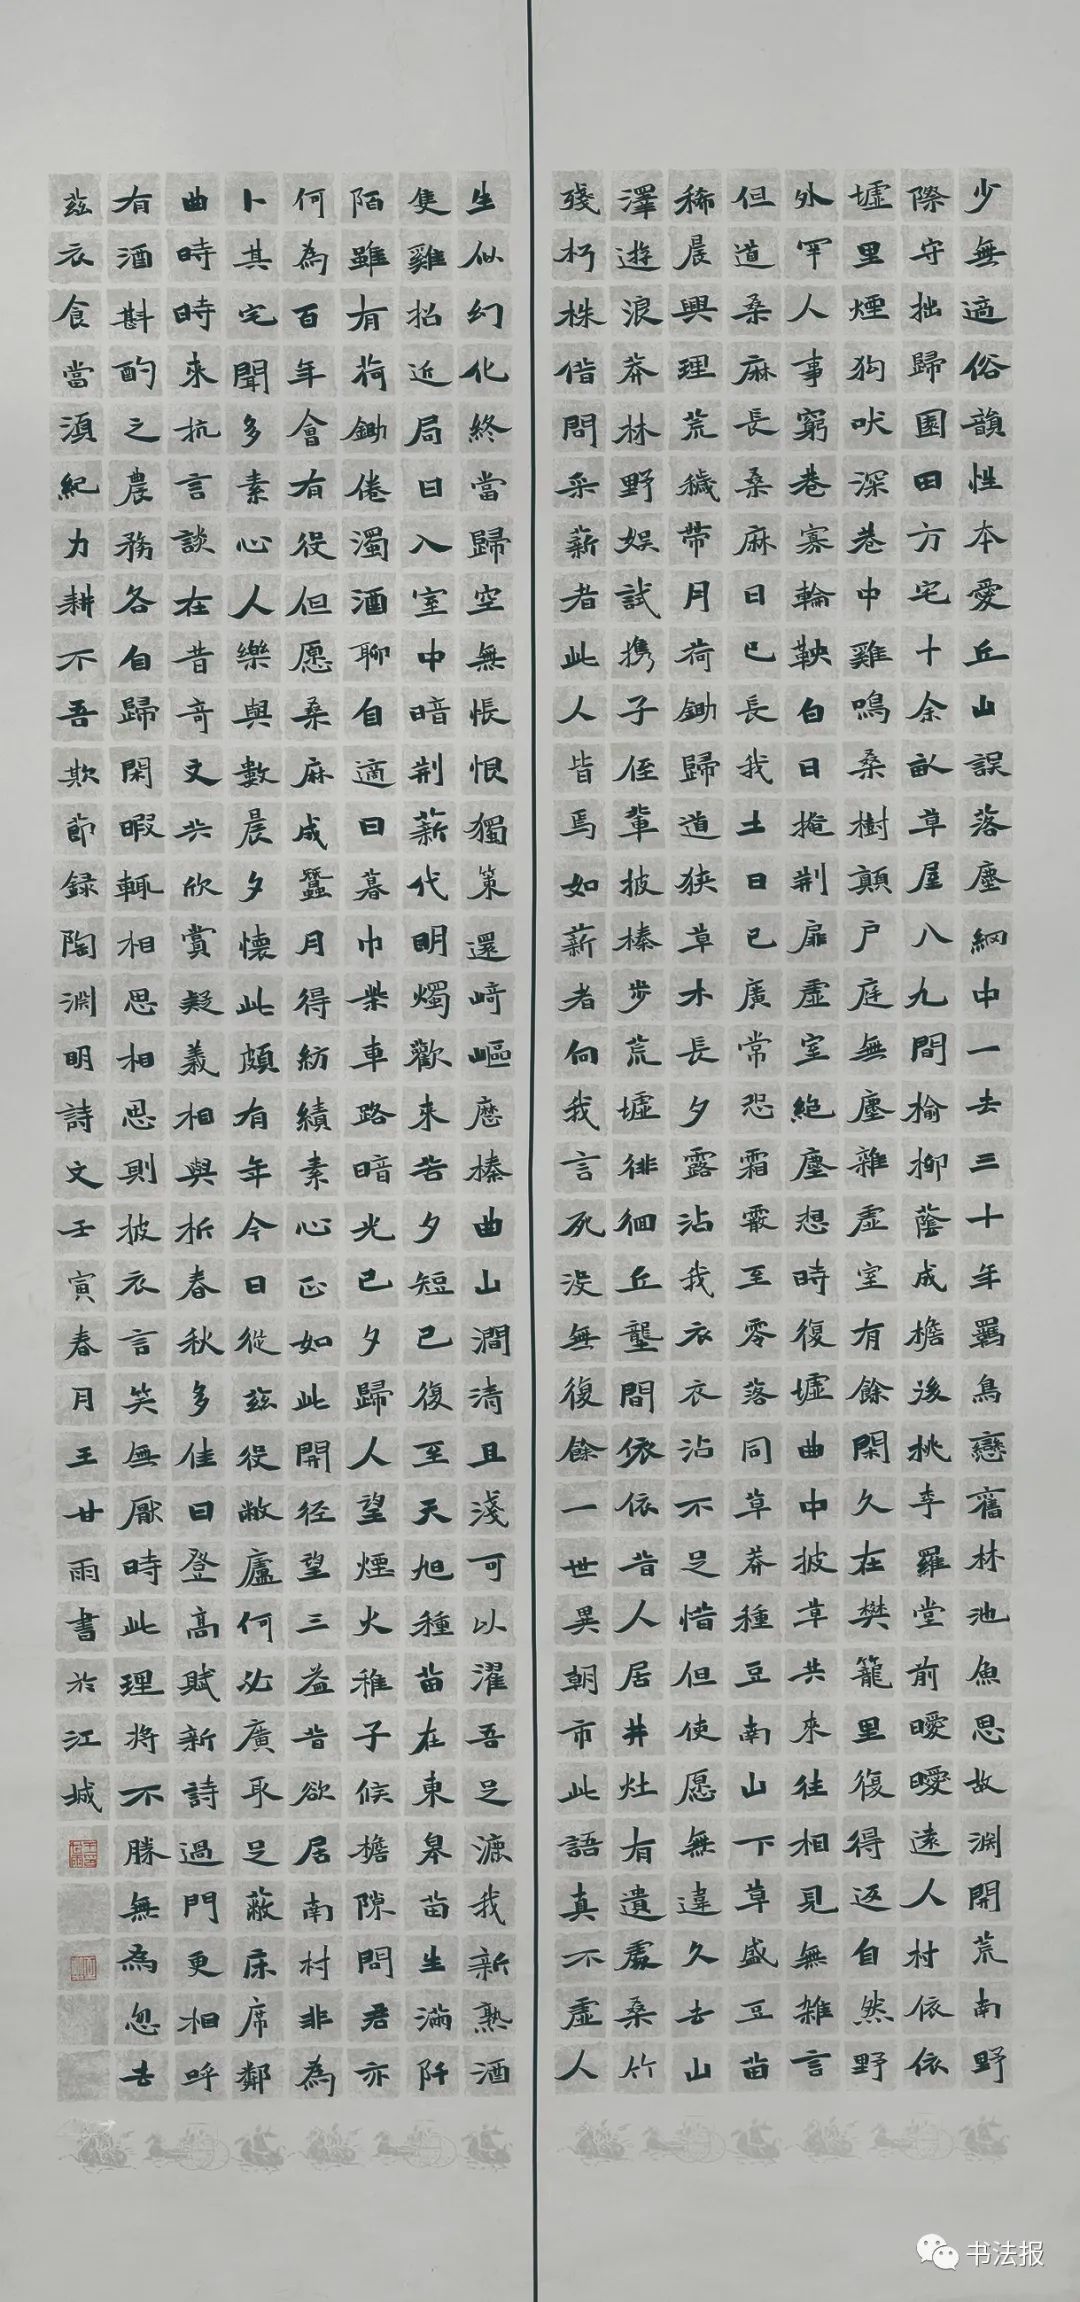 少無適俗韻性本愛丘山誤落塵網中一去三十年羈鳥戀舊林池魚思故淵開荒南野
際守拙歸園田方宅十余畝草屋八九間榆柳蔭成檐後桃李羅堂前曖曖遠人村依依
墟里煙狗吠深巷中雞鳴桑樹顛戶庭無塵雜虛室有餘閑久在樊籠里復得返自然野
外罕人事窮巷寡輪鞅白日掩荆扉虛室絕塵想時復墟曲中披草共來往相見無雜言
但道桑麻長桑麻日已長我土日已廣常恐霜霰至零落同草莽種豆南山下草盛豆苗
稀晨興理荒穢帶月荷鋤歸道狹草木長夕露沾我衣衣沾不足惜但使愿無違久去山
澤遊浪莽林野娛試携子侄輩披榛步荒墟徘徊丘壟間依依昔人居井灶有遺處桑竹
殘朽株借問采薪者此人皆焉如薪者向我言死没無復餘一世異朝市此語真不虛人
生似幻化終當歸空無悵恨獨策還崎嶇歷榛曲山澗清且淺可以濯吾足漉我新熟酒
隻雞招近局日入室中暗荆薪代明燭歡來苦夕短已復至天旭種苗在東皋苗生滿阡
陌雖有荷鋤倦濁酒聊自適日暮巾柴車路暗光已夕歸人望煙火稚子候檐隙問君亦
何為百年會有役但愿桑麻成蠶月得紡績素心正如此開径望三益昔欲居南村非為
卜其宅聞多素心人樂與數晨夕懷此頗有年今日從茲役敝廬何必廣取足蔽床席鄰
曲時時來抗言談在昔奇文共欣賞疑義相與析春秋多佳日登高賦新詩過門更相呼
有酒斟酌之農務各自歸閑暇輒相思相思則披衣言笑無厭時此理將不勝無為忽去
茲衣食當須紀力耕不吾欺節録陶淵明詩文壬寅春月王廿雨書於江城
书法报